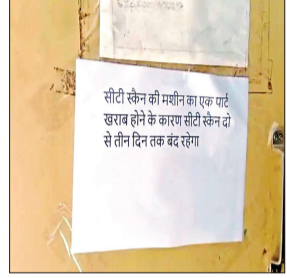 सीटी स्कैन की मशीन का एक पार्ट
खराब होने के कारण सीटी स्कैन दो
से तीन दिन तक बंद रहेगा